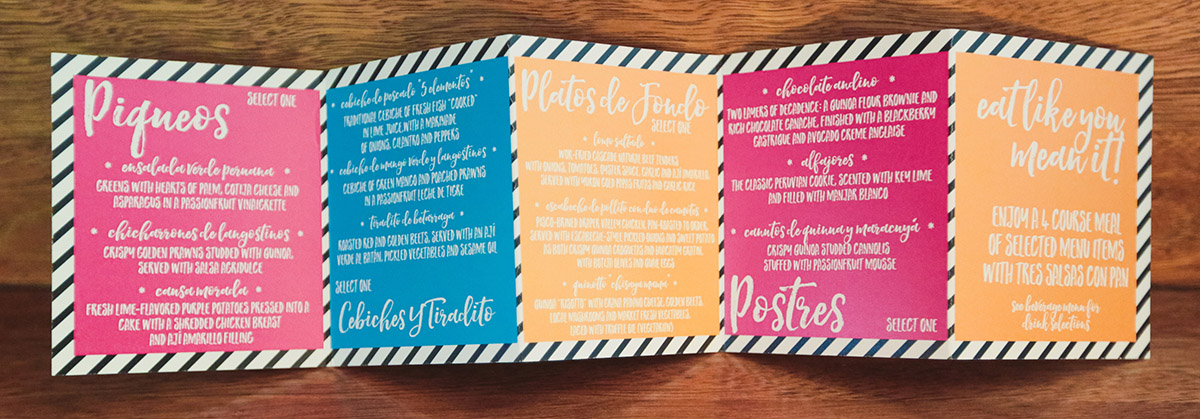 Piqueos
SELECT ONE
• ensalada verde peruana •
GREENS WITH HEARTS OF PALM, COTIJA CHEESE AND
ASPARAGUS IN A PASSIONFRUIT VINAIGRETTE
• chicharrones de langostinos •
CRISPY GOLDEN PRAWNS STUDDED WITH QUINOA,
SERVED WITH SALSA AGRIDULCE
• causa morada •
FRESH LIME-FLAVORED PURPLE POTATOES PRESSED INTO A
CAKE WITH A SHREDDED CHICKEN BREAST
AND AJÍ AMARILLO FILLING
• cebiche de pescado "5 elementos" •
TRADITIONAL CEBICHE OF FRESH FISH "COOKED"
IN LIME JUICE, WITH A MARINADE
OF ONIONS, CILANTRO AND PEPPERS
• cebiche de mango verde y langostinos •
CEBICHE OF GREEN MANGO AND POACHED PRAWNS
IN A PASSIONFRUIT LECHE DE TIGRE
• tiradito de betarraga •
ROASTED RED AND GOLDEN BEETS, SERVED WITH AN AJÍ
VERDE AL BATÁN, PICKLED VEGETABLES AND SESAME OIL
SELECT ONE
Cebiches Y Tiradito
Platos de Fondo
SELECT ONE
• lomo saltado •
WOK-FRIED CASCADE NATURAL BEEF TENDERS
WITH ONIONS, TOMATOES, OYSTER SAUCE, GARLIC AND AJÍ AMARILLO,
SERVED WITH YUKON GOLD PAPAS FRITAS AND GARLIC RICE
• escabeche de pollito con duo de camotes •
PISCO-BRINED DRAPER VALLEY CHICKEN, PAN-ROASTED TO ORDER,
SERVED WITH ESCABECHE-STYLE PICKLED ONIONS AND SWEET POTATO
AS BOTH CRISPY QUINOA CROQUETAS AND
WITH OLIVES AND QUAIL EGGS
• quinotto chisaya mama •
QUINOA "RISOTTO" WITH GRANA PADANO CHEESE, GOLDEN BEETS,
LOCAL MUSHROOMS AND MARKET FRESH VEGETABLES,
LACED WITH TRUFFLE OIL (VEGETARIAN)
• chocolate andino •
TWO LAYERS OF DECADENCE: A QUINOA FLOUR BROWNIE AND
RICH CHOCOLATE GANACHE, FINISHED WITH A BLACKBERRY
CASTRIQUE AND AVOCADO CREME ANGLAISE
• alfajores •
THE CLASSIC PERUVIAN COOKIE, SCENTED WITH KEY LIME
AND FILLED WITH MANJAR BLANCO
• canutos de quinua y maracuyá •
CRISPY QUINOA STUDED CANNOLIS
STUFFED WITH PASSIONFRUIT MOUSSE
Postres
SELECT ONE
eat like you
mean it!
ENJOY A 4 COURSE MEAL
OF SELECTED MENU ITEMS
WITH TRES SALSAS CON PAN
see beverage menu for
drink selections